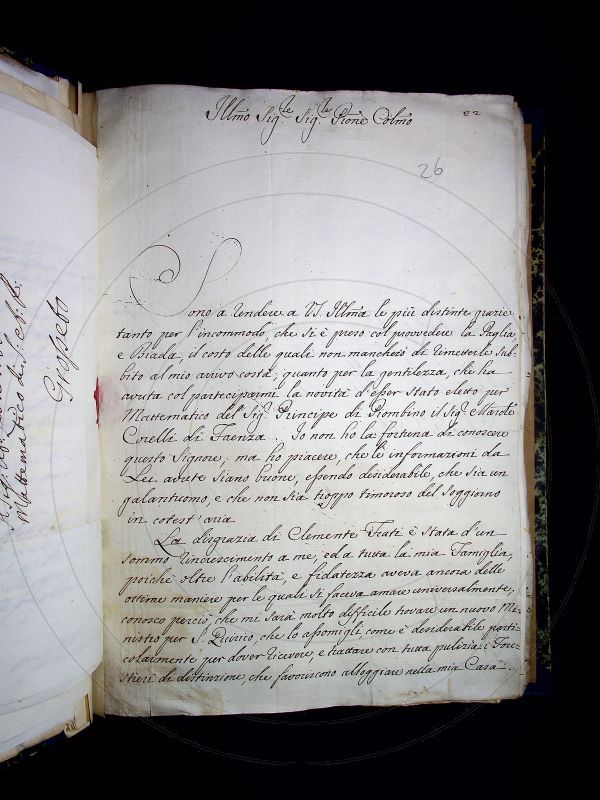 22
Illmo Sig.re Sig.re Pione Colmo
26
Sono a rendere a VS. Illma le più distinte grazie
tanto per l'incommodo, che si è preso col provvedere la Paglia,
e Biada, il costo delle quali non mancherò di rimetterle sub-
bito al mio arrivo costà; quanto per la gentilezza, che ha
avuta col parteciparmi la novità d'esser stato eletto per
Mattematico del Sig.r Principe di Piombino il Sig.r
Corelli di Faenza. Io non ho la fortuna di conoscere
questo Signore; ma ho piacere, che le informazioni da
Lei avute siano buone, essendo desiderabile, che sia un
galantuomo, e che non sia troppo timoroso del soggiorno
in cotest'aria.
La disgrazia di Clemente Frati è stata d'un
sommo rincrescimento a me, ed a tutta la mia Famiglia,
poichè oltre l'abilità, e fidatezza aveva ancora delle
ottime maniere per le quali si faceva amare universalmente;
conosco perciò, che mi sarà molto difficile trovare un nuovo Me-
nistro per S. che lo assomigli come è desiderabile parti-
colarmente per dover ricevere, e trattare con tutta pulizia i Fore-
stieri di distinzione, che favoriscono alloggiare nella mia Casa.
Mattematico di
Grosseto